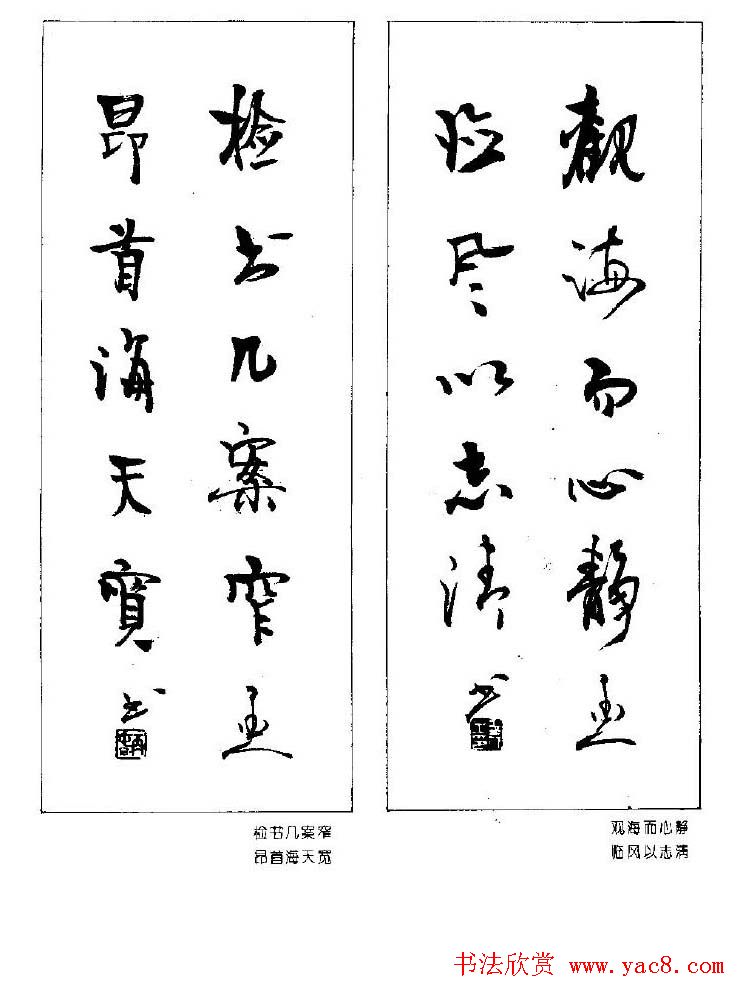 觀海而心靜
临风以志清
书
检书几案窄
昂首海天寬
书
观海而心静
临风以志清
检书几案窄
昂首海天宽
书法欣赏 www.yac8.com